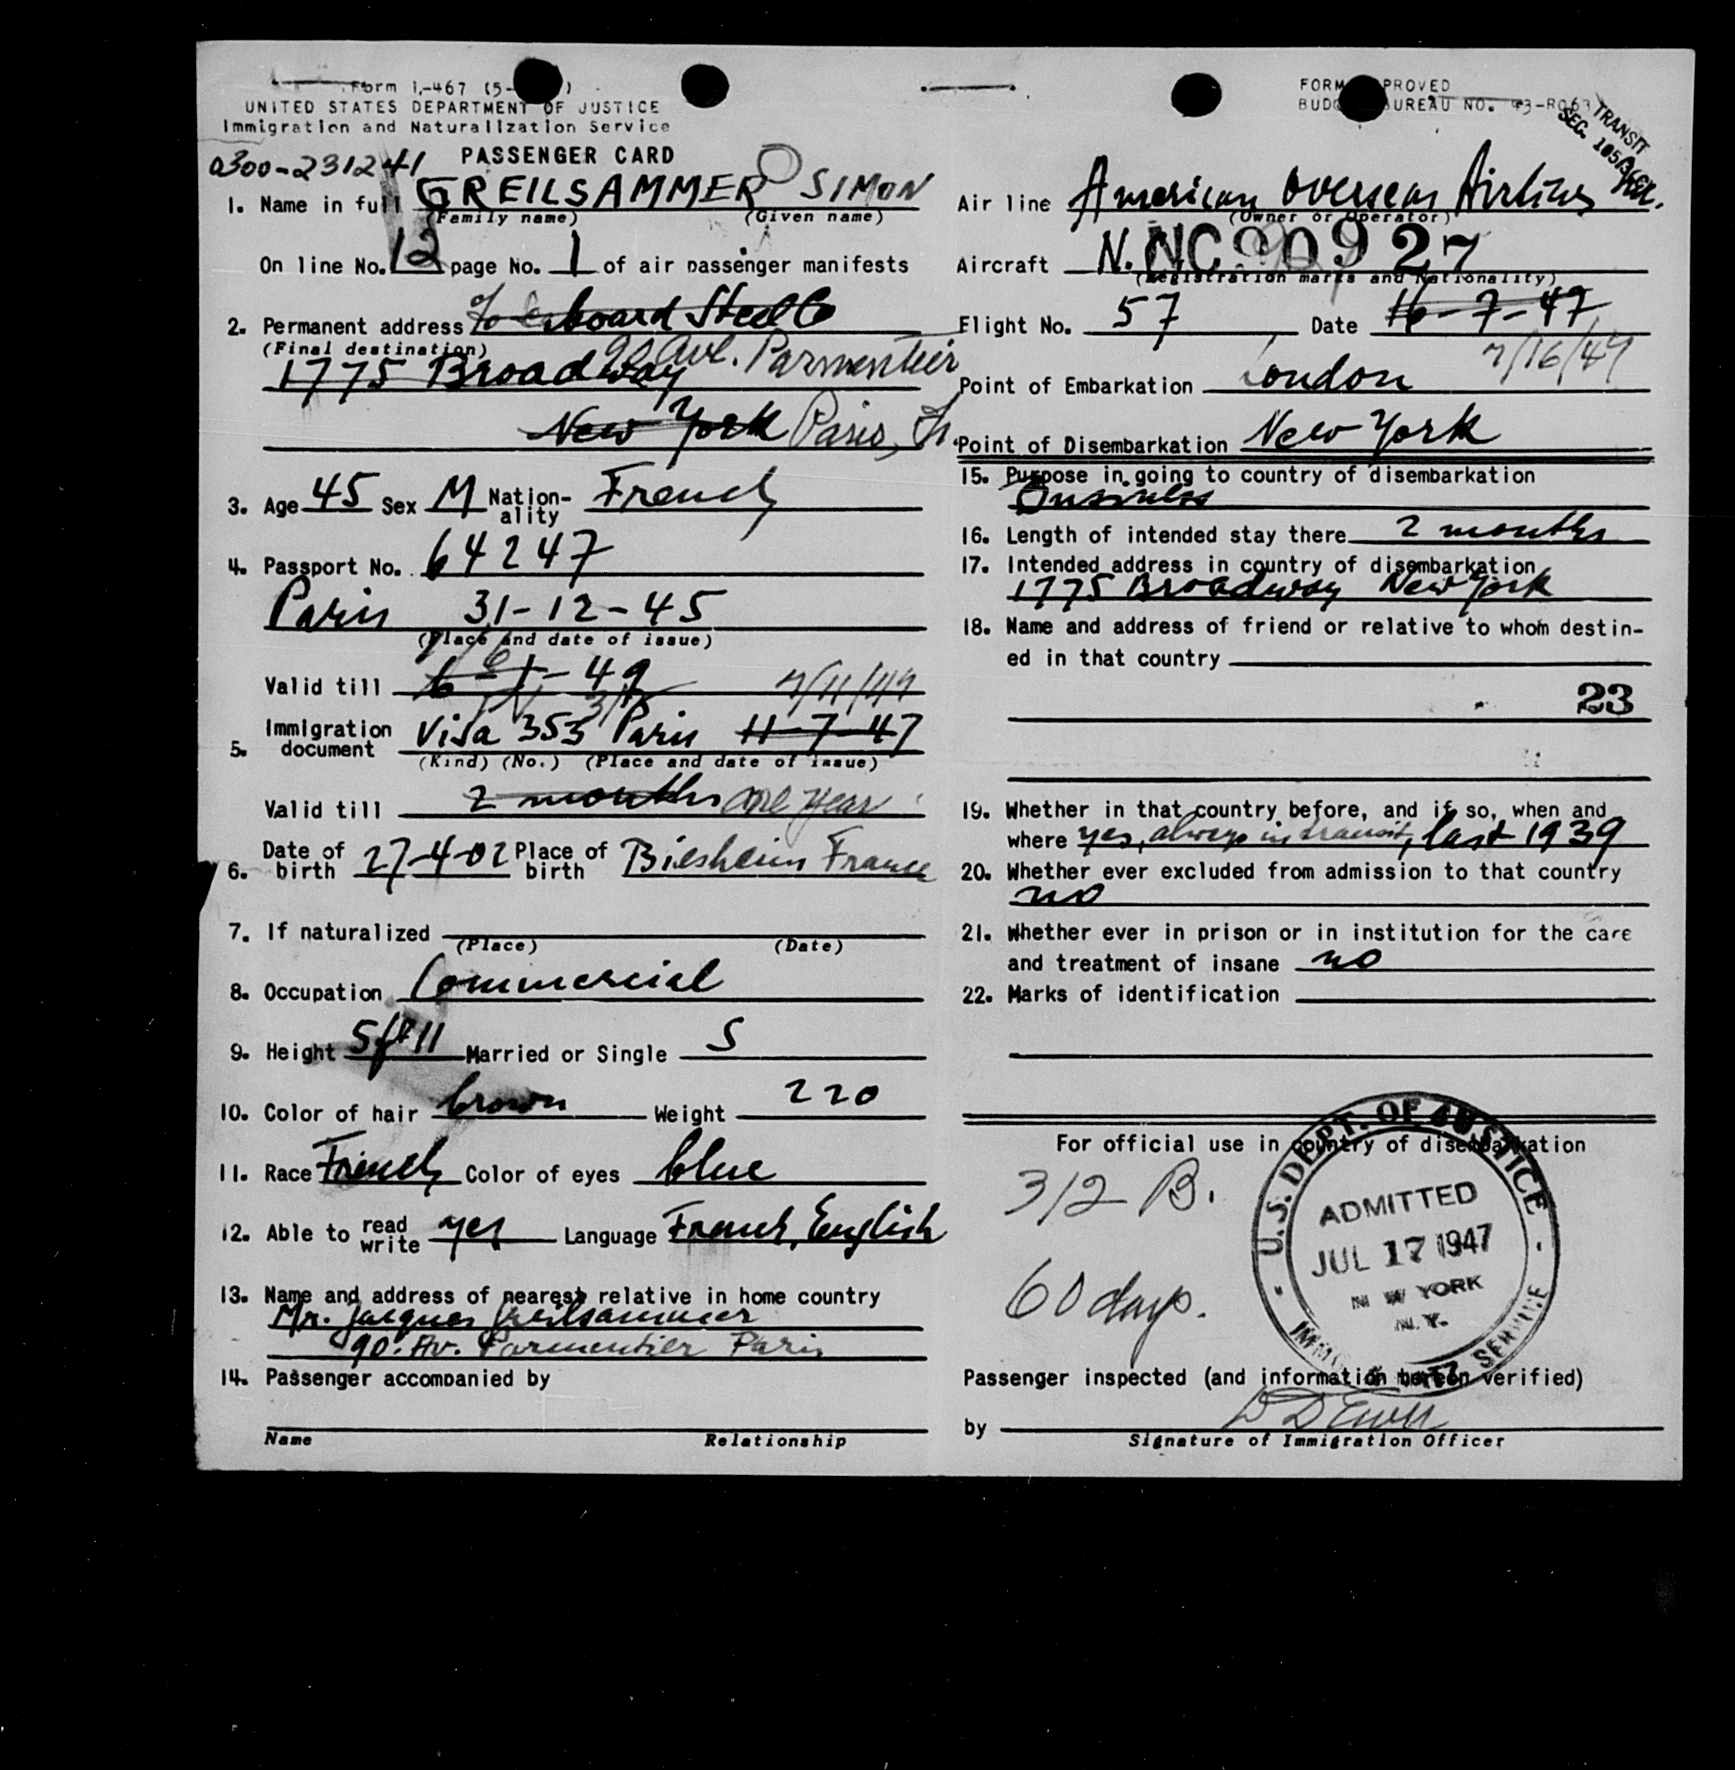 Form I-467 (5-
UNITED STATES DEPARTMENT OF JUSTICE
Immigration and Naturalization Service
0300-231241 PASSENGER CARD
1. Name in full GREILSAMMER SIMON
(Family name) (Given name)
On line No. 12 page No. 1 of air passenger manifests
2. Permanent address c/o board Steel Co
(Final destination)
1775 Broadway 90 Ave. Parmentier
New York Paris, Fr.
3. Age 45 Sex M Nation-ality French
4. Passport No. 64247
Paris 31-12-45
(Place and date of issue)
Valid till 49 7/11/47
5. Immigration document Visa 353 Paris 11-7-47
(Kind) (No.) (Place and date of issue)
Valid till 2 months one year
6. Date of birth 27-4-02 Place of birth Biesheim France
7. If naturalized
(Place) (Date)
8. Occupation Commercial
9. Height 5ft 11 Married or Single S
10. Color of hair brown Weight 220
11. Race French Color of eyes blue
12. Able to read write yes Language French, English
13. Name and address of nearest relative in home country
Mr. Jacques Greilsammer
90. Av. Parmentier Paris
14. Passenger accompanied by
Name Relationship
FORM APPROVED
BUDGET BUREAU NO. 43-R063
TRANSIT
SEC.
Air line American Overseas Airlines
(Owner or Operator)
Aircraft N. NC90927
(Registration marks and Nationality)
Flight No. 57 Date 16-7-47
7/16/47
Point of Embarkation London
Point of Disembarkation New York
15. Purpose in going to country of disembarkation
Business
16. Length of intended stay there 2 months
17. Intended address in country of disembarkation
1775 Broadway New York
18. Name and address of friend or relative to whom destin-
ed in that country
23
19. Whether in that country before, and if so, when and
where yes, always in transit, last 1939
20. Whether ever excluded from admission to that country
no
21. Whether ever in prison or in institution for the care
and treatment of insane no
22. Marks of identification
For official use in country of disembarkation
3/2 B.
60 days.
U.S. DEPT. OF JUSTICE
ADMITTED
JUL 17 1947
N W YORK
N.Y.
Passenger inspected (and information hereon verified)
by
Signature of Immigration Officer